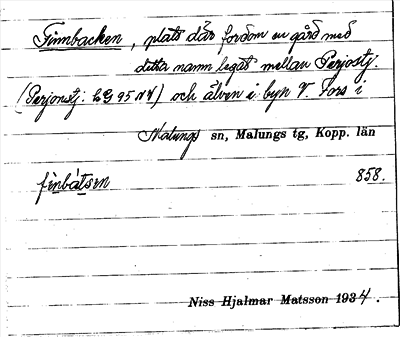 Finnbacken, plats där fordom en gård med
detta namn legat mellan Perjostj.
(Perjonstj. LG 95 NV) och älven i byn V. Fors i
Malungs sn, Malungs tg, Kopp. län
finbátsen 858.
Niss Hjalmar Matsson 1934.